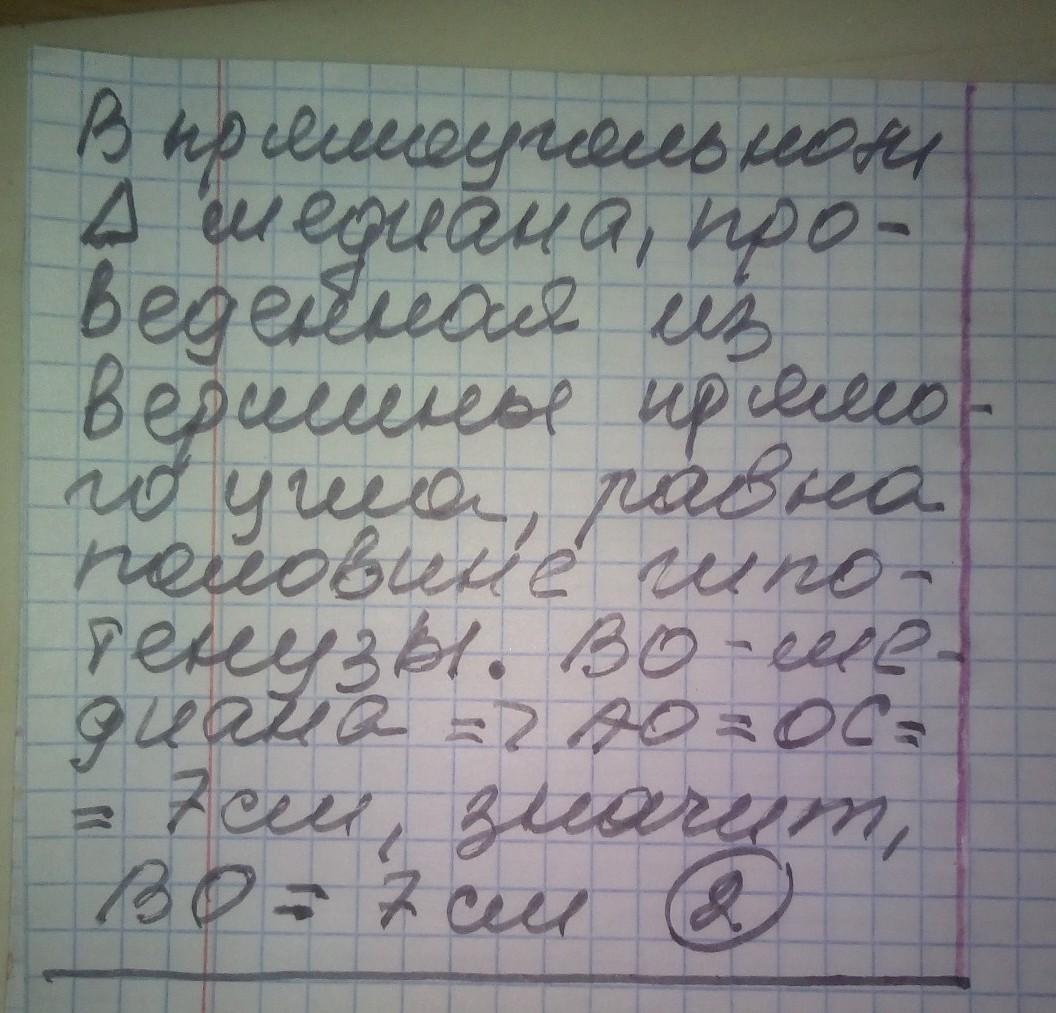 В прямоугольном
Δ медиана, про-
веденная из
вершины прямо-
го угла, равна
половине гипо-
тенузы. ВО - ме-
диана => АО = ОС =
= 7 см, значит,
ВО = 7 см 2